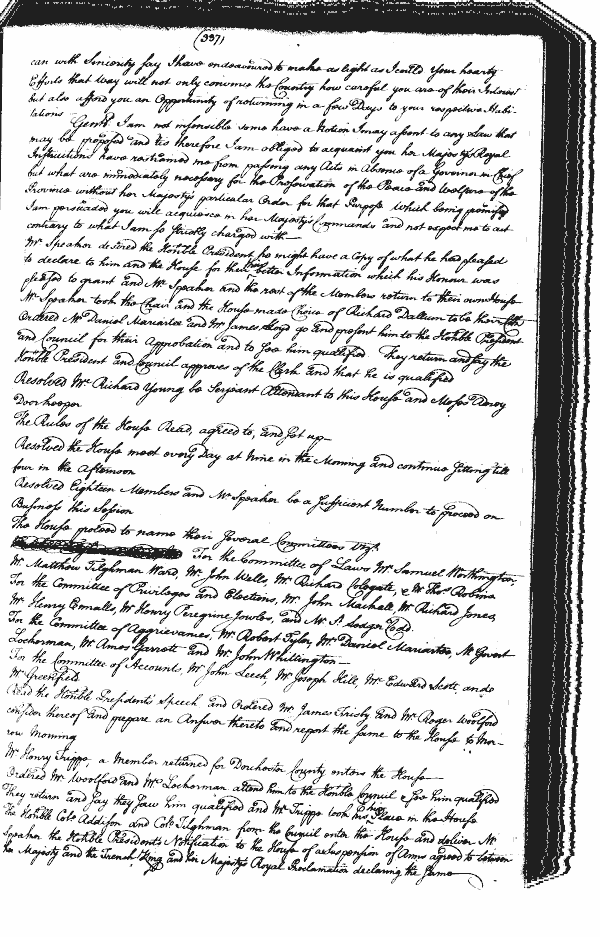 (337)
can with Sincerity say I have endeavoured to make as light as I could your hearty
Efforts that way will not only convince the Country how careful you are of their Interest
but also afford you an Opportunity of returning in a few Days to your respective Habi-
tations
Gentn. I am not insensible some have a Notion I may assent to any Law that
may be proposed and tis therefore I am obliged to acquaint you her Majestys Royal
Instructions have restrained me from passing any Acts in Absence of a Governor in Chief
but what are immediately necessary for the Preservation of the Peace and Welfare of the
Province without her Majesty's particular Order for that Purpose which being premised
I am persuaded you will acquiesce in her Majesty's Commands and not expect me to act
contrary to what I am so strictly charged with
Mr. Speaker desired the Honble President he might have a Copy of what he had pleased
to declare to him and the House for their better Information which his Honour was
pleased to grant and Mr. Speaker and the rest of the Members return to their own House
Mr. Speaker took the Chair and the House made Choice of Richard Dallam to be their Clk
Ordered Mr. Daniel Mariartee and Mr. James Lloyd go and present him to the Honble President
and Council for their Approbation and to see him qualified They return and say the
Honble President and Council approves of the Clerk and that he is qualified
Resolved Mr. Richard Young be Serjeant Attendant to this House and Moses
Doorkeeper
The Rules of the House Read, agreed to, and set up
Resolved the House meet every Day at Nine in the Morning and continue sitting till
four in the Afternoon
Resolved Eighteen Members and Mr. Speaker be a sufficient Number to proceed on
Business this Session
The House proceed to name their several Committees Vizt.
For the Committee of Laws Mr. Samuel Worthington,
Mr. Matthew Tilghman Ward, Mr. John Wells, Mr. Richard Colegate, & Mr. Thos. Robins
For the Committee of Privileges and Elections, Mr. John Mackall, Mr. Richard Jones,
Mr. Henry Ennalls, Mr. Henry Peregrine Jowles, and Mr. St. Leger Codd.
For the Committee of Aggrievances, Mr. Robert Tyler, Mr. Daniel Mariartee, Mr. Govert
Lockerman, Mr. Amos Garrett and Mr. John Whittington
For the Committee of Accounts, Mr. John Leech, Mr. Joseph Hill, Mr. Edward Scott, and
Mr. Greenfield
Read the Honble President's Speech and Ordered Mr. James Frisby and Mr. Roger Woolford
consider thereof and prepare an Answer thereto and report the same to the House to Mor-
row Morning
Mr. Henry Tripp, a Member returned for Dorchester County enters the House
Ordered Mr. Woolford and Mr. Lockerman attend him to the Honble Council & see him qualified
They return and say they saw him qualified and Mr. Tripp took his Place in the House
The Honble Colo. Addison and Colo. Tilghman from the Council enter the House and deliver Mr.
Speaker the Honble President's Notification to the House of a Suspension of Arms agreed to between
her Majesty and the French King and her Majesty's Royal Proclamation declaring the same